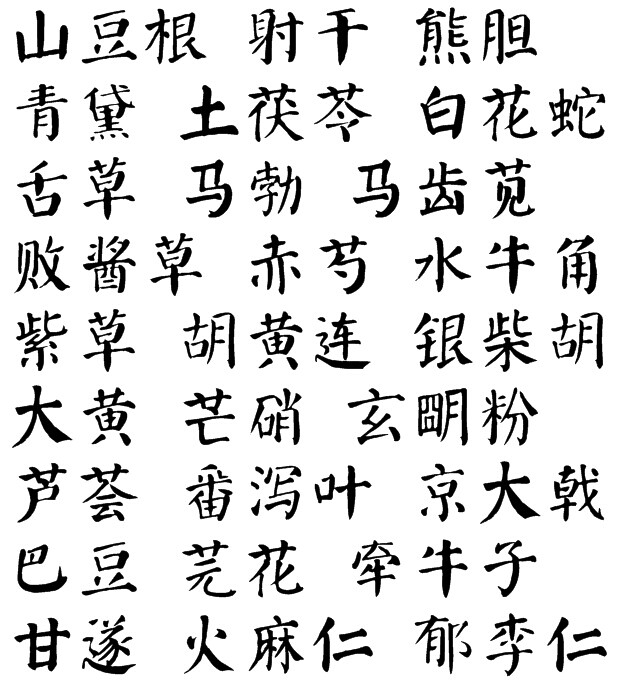 山豆根 射干 熊胆
青黛 土茯苓 白花蛇
舌草 马勃 马齿苋
败酱草 赤芍 水牛角
紫草 胡黄连 银柴胡
大黄 芒硝 玄明粉
芦荟 番泻叶 京大戟
巴豆 芫花 牵牛子
甘遂 火麻仁 郁李仁